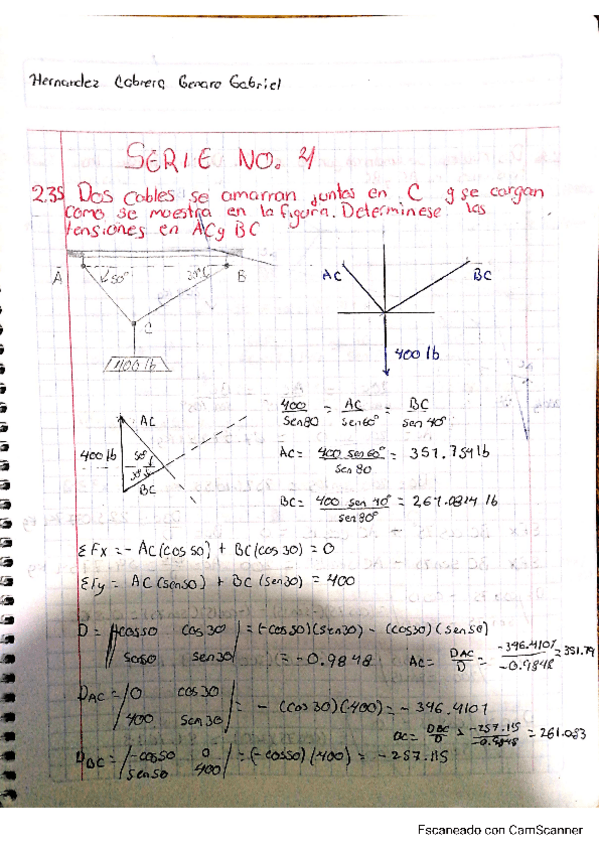 Hernandez Cabrera Genaro Gabriel
SERIE NO. 4
2.35 Dos cables se amarran juntos en C y se cargan
como se muestra en la figura. Determinese las
tensiones en AC y BC
A 50° 30° B
C
400 lb
AC BC
400 lb
AC
400 lb 50°
30°
BC
400/sen80 = AC/sen60° = BC/sen 40°
AC= 400 sen60°/sen 80 = 351.754 lb
BC= 400 sen 40°/sen80° = 261.0814 lb
ΣFx = - AC(cos 50) + BC(cos 30) = 0
ΣFy = AC(sen50) + BC(sen30) = 400
D = |-cos50 cos30| = (-cos50)(sen30) - (cos30)(sen50)
|sen50 sen30| = -0.9848 AC= DAC/D = -346.4101/-0.9848 = 351.79
DAC = |0 cos30| = - (cos 30)(400) = - 346.4101
|400 sen30|
BC= DBC/D = -257.115/-0.9848 = 261.083
DBC = |-cos50 0| = (-cos50)(400) = - 257.115
|sen50 400|
Escaneado con CamScanner